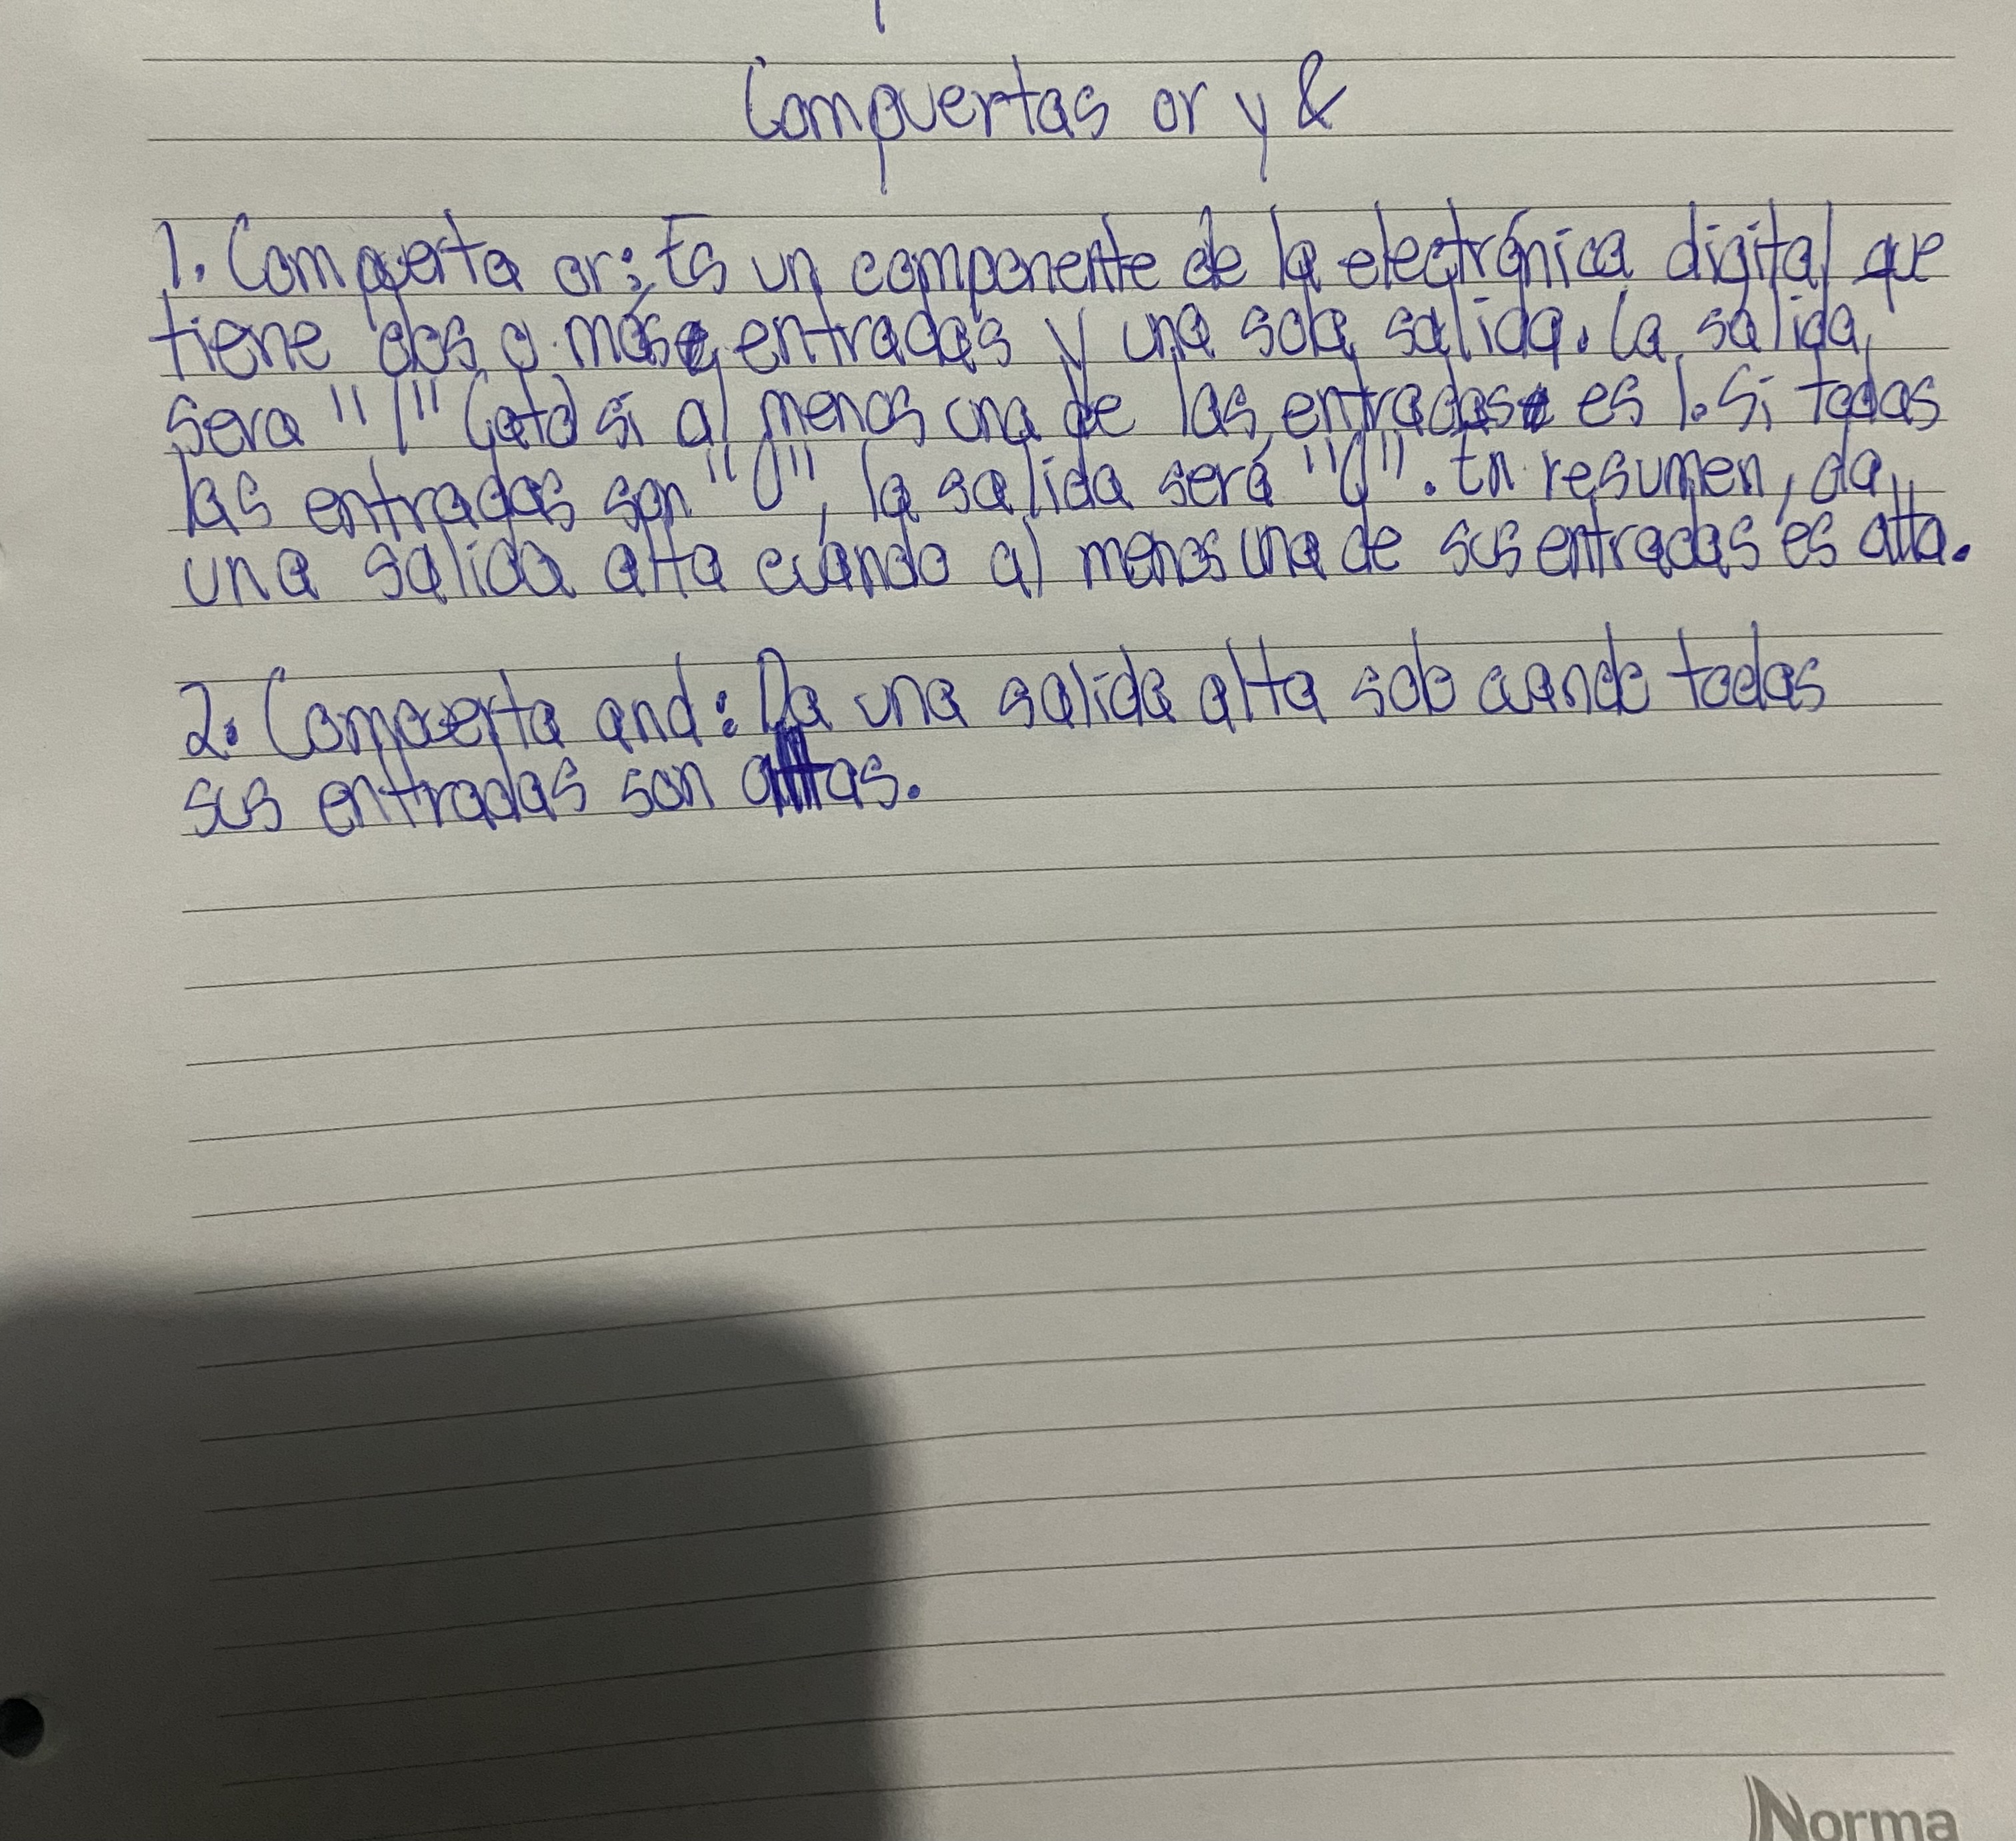 Compuertas or y &
1. Compuerta or: Es un componente de la electrónica digital que
tiene dos o más entradas y una sola salida. La salida
sera "1" (alto) si al menos una de las entradas es 1. Si todas
las entradas son "0", la salida será "0". En resumen, da
una salida alta cuándo al menos una de sus entradas es alta.
2. Compuerta and: Da una salida alta solo cuando todas
sus entradas son altas.
Norma